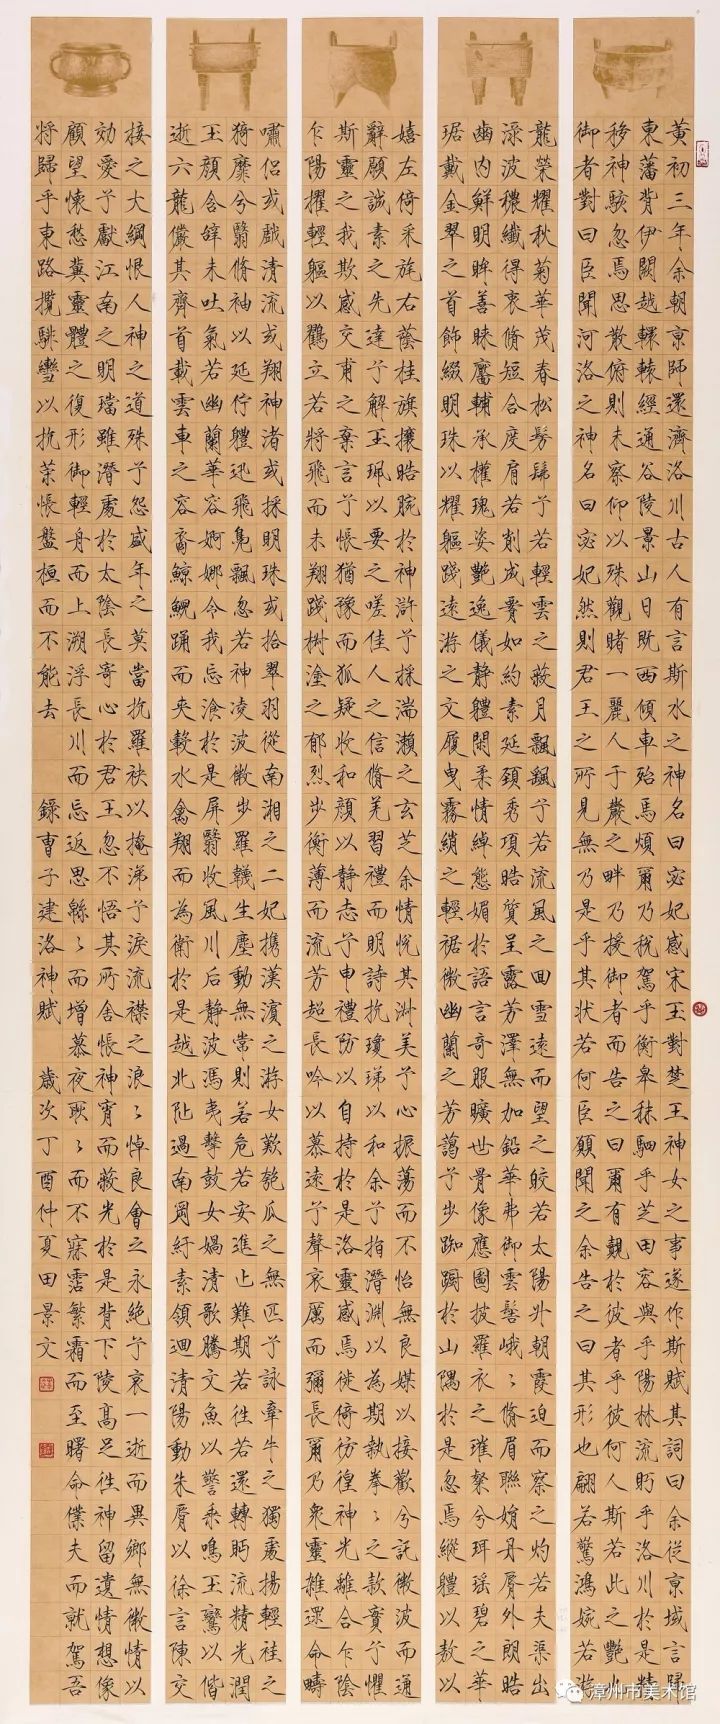 黃初三年余朝京師還濟洛川古人有言斯水之神名曰宓妃感宋玉對楚王神女之事遂作斯賦其詞曰余從京域言歸
東藩背伊闕越轘轅經通谷陵景山日既西傾車殆馬煩爾乃稅駕乎衡皋秣駟乎芝田容與乎陽林流眄乎洛川於是精
移神駭忽焉思散俯則未察仰以殊觀睹一麗人于巖之畔乃援御者而告之曰爾有覿於彼者乎彼何人斯若此之艷也
御者對曰臣聞河洛之神名曰宓妃然則君王之所見無乃是乎其狀若何臣願聞之余告之曰其形也翩若驚鴻婉若游
龍榮耀秋菊華茂春松髣髴兮若輕雲之蔽月飄飄兮若流風之回雪遠而望之皎若太陽升朝霞迫而察之灼若夫渠出
淥波穠纖得衷脩短合度肩若削成要如約素延頸秀項皓質呈露芳澤無加鉛華弗御雲髻峨々脩眉聯娟丹脣外朗皓
齒內鮮明眸善睞靨輔承權瑰姿艷逸儀靜體閑柔情綽態媚於語言奇服曠世骨像應圖披羅衣之璀粲兮珥瑤碧之華
琚戴金翠之首飾綴明珠以耀軀踐遠游之文履曳霧綃之輕裾微幽蘭之芳藹兮步踟躕於山隅於是忽焉縱體以敖以
嬉左倚采旄右蔭桂旗攘皓腕於神滸兮採湍瀨之玄芝余情悅其淑美兮心振蕩而不怡無良媒以接歡兮託微波而通
辭願誠素之先達兮解玉珮以要之嗟佳人之信脩羌習禮而明詩抗瓊珶以和余兮指潛淵以為期執拳々之款實兮懼
斯靈之我欺感交甫之棄言兮悵猶豫而狐疑收和顏以靜志兮申禮防以自持於是洛靈感焉徙倚彷徨神光離合乍陰
乍陽擢輕軀以鶴立若將飛而未翔踐椒塗之郁烈步衡薄而流芳超長吟以慕遠兮聲哀厲而彌長爾乃眾靈雜遝命疇
嘯侶或戲清流或翔神渚或採明珠或拾翠羽從南湘之二妃攜漢濱之游女歎匏瓜之無匹兮詠牽牛之獨處揚輕袿之
猗靡兮翳脩袖以延佇體迅飛鳧飄忽若神凌波微步羅韈生塵動無常則若危若安進止難期若往若還轉眄流精光潤
玉顏含辭未吐氣若幽蘭華容婀娜令我忘湌於是屏翳收風川后靜波馮夷擊鼓女媧清歌騰文魚以警乘鳴玉鸞以偕
逝六龍儼其齊首載雲車之容裔鯨鯢踊而夾轂水禽翔而為衛於是越北阯過南岡紆素領迴清陽動朱脣以徐言陳交
接之大綱恨人神之道殊兮怨盛年之莫當抗羅袂以掩涕兮淚流襟之浪々悼良會之永絕兮哀一逝而異鄉無微情以
効愛兮獻江南之明璫雖潛處於太陰長寄心於君王忽不悟其所舍悵神宵而蔽光於是背下陵高足往神留遺情想像
顧望懷愁冀靈體之復形御輕舟而上溯浮長川而忘返思緜々而增慕夜耿々而不寐霑繁霜而至曙命僕夫而就駕吾
將歸乎東路攬騑轡以抗策悵盤桓而不能去 錄曹子建洛神賦 歲次丁酉仲夏田景文
漳州市美术馆